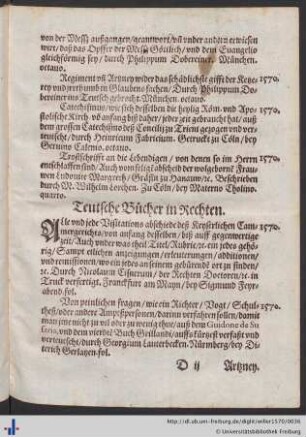 von der Mess außgangen/ geantwort/ vñ vnder andern erwiesen
wirt/ daß das Opffer der Mess Götlich/ vnd dem Euangelio
gleichförmig sey/ durch Philippum Dobereiner. München.
octauo.
Regiment vñ Artzney wider das schädlichste gifft der Ketze- 1570.
rey vnd jrrthumb in Glaubens sachen/ Durch Philippum Do-
bereiner ins Teutsch gebracht. München. octauo.
Catechismus/ wie sich desselben die heylig Röm. vnd Apo- 1570.
stolische Kirch vō anfang biß daher/ jeder zeit gebraucht hat/ auß
dem grossen Catechismo deß Concilij zu Trient gezogen vnd ver-
teutscht/ durch Heinricum Fabricium. Getruckt zu Cöln/ bey
Geruino Caleuio. octauo.
Trostschrifft an die Lebendigen/ von denen so im Herrn 1570.
entschlaffen sind/ Auch von selig abscheid der wolgeborne Frau-
wen Ludouice Margreth/ Gräfin zu Hanauw ꝛc. Geschrieben
durch M. Wilhelm Lorchen. Zu Cöln/ bey Materno Cholino.
quarto.
Teutsche Bücher in Rechten.
Alle vnd jede Visitations abschiede deß Keyserlichen Cam- 1570.
mergerichts/ von anfang desselben/ biß auff gegenwertige
zeit/ Auch vnder was theil/ Titel/ Rubric/ ꝛc. ein jedes gehö-
rig/ Sampt etlichen anzeigungen/ erleuterungen/ additionen/
vnd remissionen/ wo ein jedes an seinem gebürende ort zu finden/
ꝛc. Durch Nicolaum Cisnerum/ der Rechten Doctoren/ ꝛc. in
Truck verfertigt. Franckfurt am Mayn/ bey Sigmund Feyr-
abend. fol.
Von peinlichen fragen/ wie ein Richter/ Vogt/ Schult- 1570.
theß/ oder andere Amptßpersonen/ darinn verfahren sollen/ damit
man jene nicht zu vil oder zu wenig thue/ auß dem Guidone de Su
saria, vnd dem vierdten Buch Gotllandi/ auffs kürtzest verfaßt vnd
verteutscht/ durch Georgium Lauterbecken. Nürmberg/ bey Di-
etrich Gerlatzen. fol.
D ij Artzney.
http://dl.ub.uni-freiburg.de/diglit/willer1570/0036
© Universitätsbibliothek Freiburg